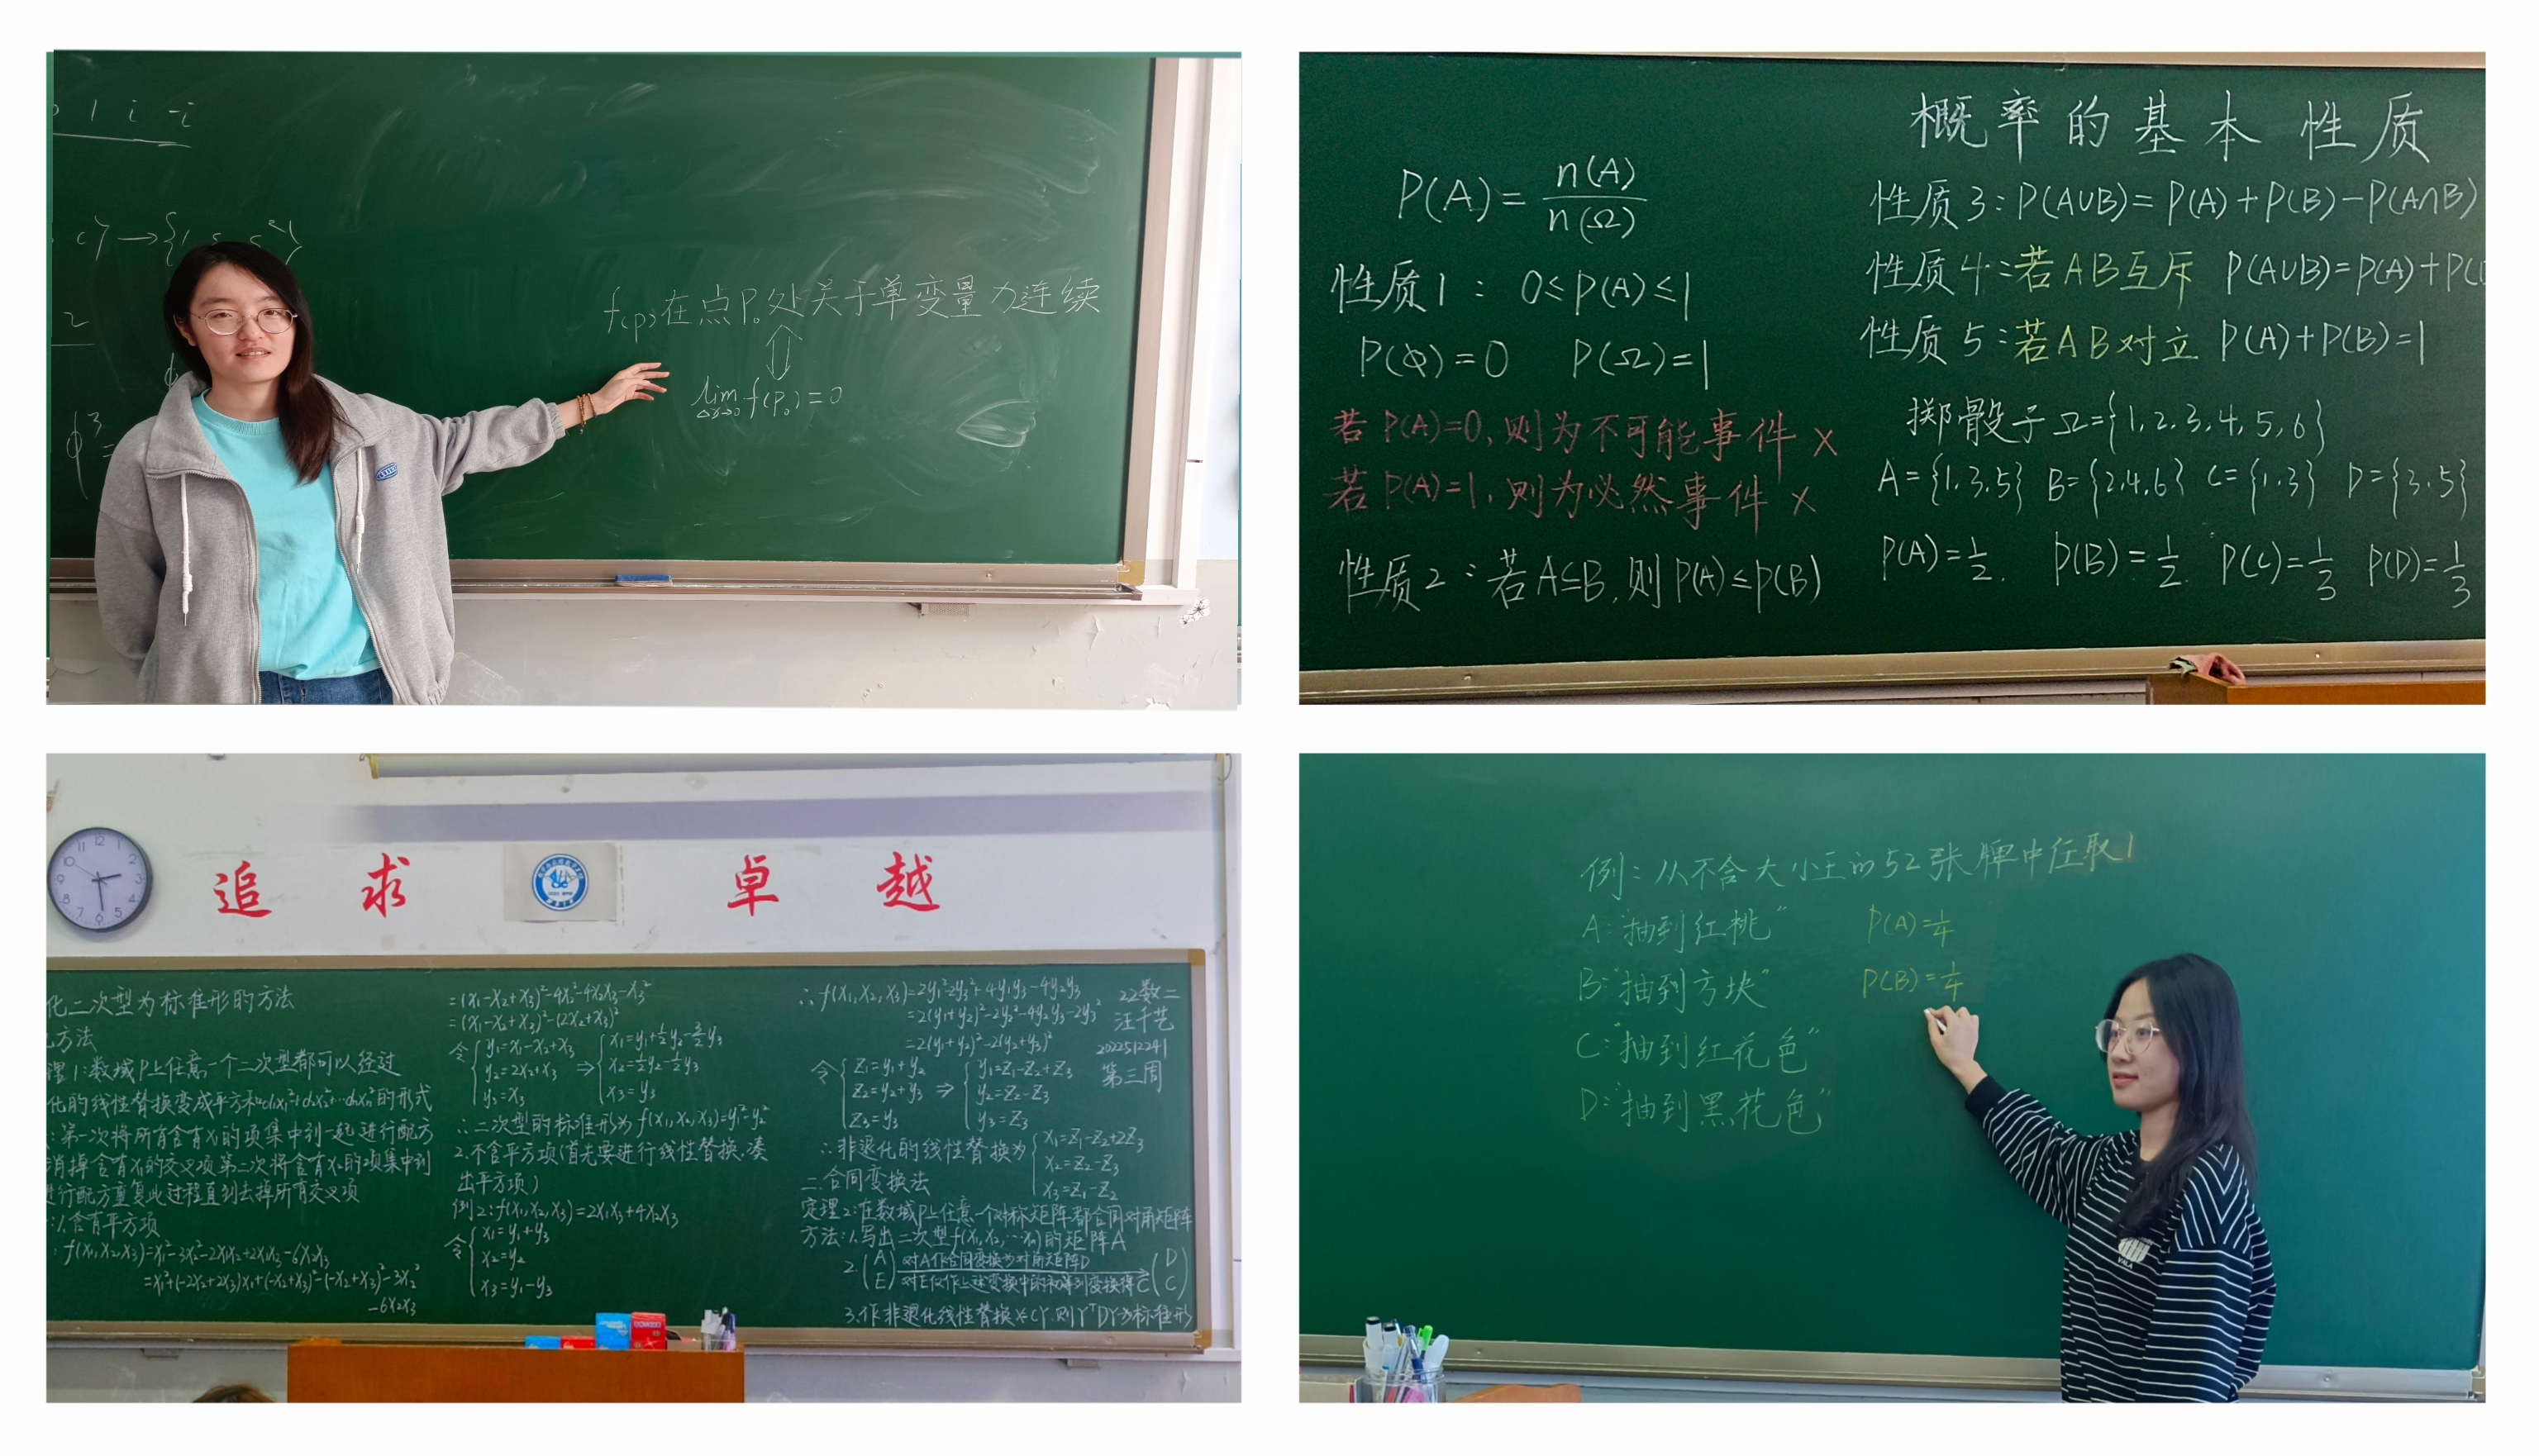 0 1 i -i
2
f(p)在点P₀处关于单变量x连续
lim f(P₀)=0
Δx→0
概率的基本性质
P(A)=n(A)/n(Ω)
性质1：0≤P(A)≤1
P(φ)=0 P(Ω)=1
若P(A)=0,则为不可能事件 ×
若P(A)=1,则为必然事件 ×
性质2：若A⊆B,则P(A)≤P(B)
性质3：P(A∪B)=P(A)+P(B)-P(A∩B)
性质4：若AB互斥 P(A∪B)=P(A)+P(
性质5：若AB对立 P(A)+P(B)=1
掷骰子Ω={1,2,3,4,5,6}
A={1,3,5} B={2,4,6} C={1,3} D={3,5}
P(A)=1/2 P(B)=1/2 P(C)=1/3 P(D)=1/3
追求 卓越
12 1 2 3 4 5 6 7 8 9 10 11
化二次型为标准形的方法
方法
理1:数域P上任意一个二次型都可以经过
化的线性替换变成平方和d₁x₁²+d₂x₂²+…dₙxₙ²的形式
:第一次将所有含有x₁的项集中到一起进行配方
消掉含有x₁的交叉项第二次将含有x₂的项集中到
进行配方重复此过程直到去掉所有交叉项
:1.含有平方项
:f(x₁,x₂,x₃)=x₁²-3x₂²-2x₁x₂+2x₁x₃-6x₂x₃
=x₁²+(-2x₂+2x₃)x₁+(-x₂+x₃)²-(-x₂+x₃)²-3x₂²
-6x₂x₃
=(x₁-x₂+x₃)²-4x₂²-4x₂x₃-x₃²
=(x₁-x₂+x₃)²-(2x₂+x₃)²
令{y₁=x₁-x₂+x₃ y₂=2x₂+x₃ y₃=x₃ ⇒ {x₁=y₁+½y₂-3/2y₃ x₂=½y₂-½y₃ x₃=y₃
∴二次型的标准形为f(x₁,x₂,x₃)=y₁²-y₂²
2.不含平方项(首先要进行线性替换,凑
出平方项)
例2:f(x₁,x₂,x₃)=2x₁x₃+4x₂x₃
令{x₁=y₁+y₃
x₂=y₂
x₃=y₁-y₃
∴f(x₁,x₂,x₃)=2y₁²-2y₃²+4y₁y₃-4y₂y₃
=2(y₁+y₂)²-2y₂²-4y₂y₃-2y₃²
=2(y₁+y₂)²-2(y₂+y₃)²
22数二
汪千艺
2022512241
第三周
令{z₁=y₁+y₂ z₂=y₂+y₃ z₃=y₃ ⇒ {y₁=z₁-z₂+z₃ y₂=z₂-z₃ y₃=z₃
∴非退化的线性替换为{x₁=z₁-z₂+2z₃ x₂=z₂-z₃ x₃=z₁-z₂
二合同变换法
定理2:在数域P上任意一个对称矩阵都合同对角矩阵
方法:1.写出二次型f(x₁,x₂,…xₙ)的矩阵A
2.(A E) 对A作合同变换为对角矩阵D (D C)
对E仅作上述变换中的初等列变换得C
3.作非退化线性替换X=CY,则YᵀDY为标准形
例：从不含大小王的52张牌中任取1
A:"抽到红桃" P(A)=1/4
B:"抽到方块" P(B)=1/4
C:"抽到红花色"
D:"抽到黑花色"
VALA